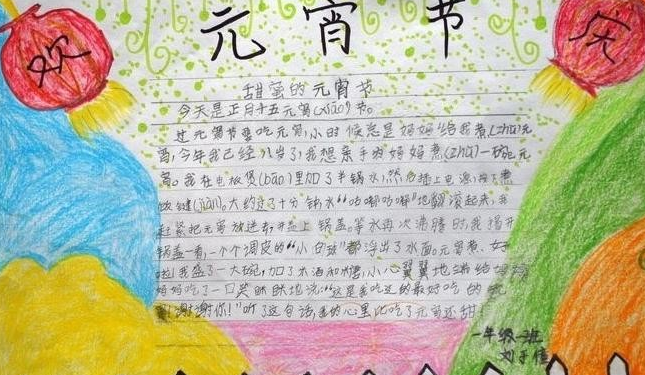 元宵节
欢
庆
甜蜜的元宵节
今天是正月十五元宵(xiāo)节。
过元宵节要吃元宵,小时候总是妈妈给我煮(zhǔ)元
宵,今年我已经八岁了,我想亲手为妈妈煮(zhǔ)一碗元
宵。我在电饭煲(bāo)里加了半锅水,然后插上电源,按下煮
饭键(jiàn)。大约过了十分钟水“咕嘟咕嘟”地翻滚起来,我
赶紧把元宵放进去,并盖上锅盖。等水再次沸腾时,我揭开
锅盖一看,一个个调皮的“小白球”都浮出了水面。元宵煮好
啦!我盛了一大碗,加了水酒和糖,小心翼翼地端给妈妈
妈妈吃了一口笑眯眯地说:“这是我吃过的最好吃的
谢谢你!”听了这句话,我的心里比吃了元宵还甜!
一年级一班
刘子